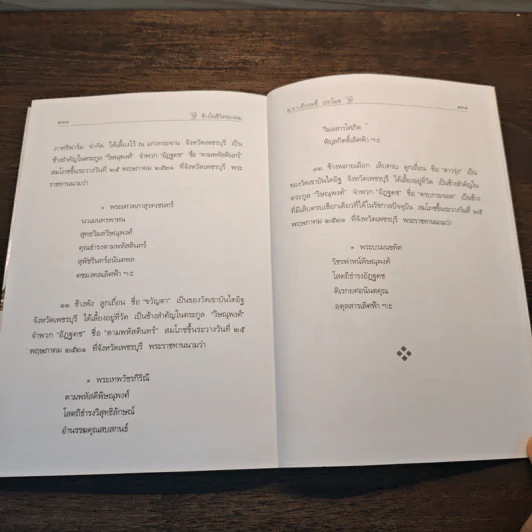 ช้างในชีวิตของผม
ภาศรีฟาร์ม จำกัด ได้เลี้ยงไว้ ณ แก่งกระจาน จังหวัดเพชรบุรี เป็น
ช้างสำคัญในตระกูล "วิษณุพงศ์" จำพวก "อัฏฐคช" ชื่อ "ดามพหัสดินทร์"
สมโภชขึ้นระวางวันที่ ๒๕ พฤษภาคม ๒๕๒๑ ที่จังหวัดเพชรบุรี พระ
ราชทานนามว่า
นวมนาทรพาหน
สุทธวิมลวิษณุพงศ์
คุณธำรงดามพหัสดินทร์
สุพัชรินทร์อนันตพล
คชมงคลเลิศฟ้า ฯะ
๑๑. ช้างพัง ลูกเถื่อน ชื่อ "ขวัญตา" เป็นของวัดเขาบันไดอิฐ
จังหวัดเพชรบุรี ได้เลี้ยงอยู่ที่วัด เป็นช้างสำคัญในตระกูล "วิษณุพงศ์"
จำพวก "อัฏฐคช" ชื่อ "ดามพหัสดินทร์" สมโภชขึ้นระวางวันที่ ๒๕
พฤษภาคม ๒๕๒๑ ที่จังหวัดเพชรบุรี พระราชทานนามว่า
* พระเทพวัชรกิริณี
ดามพหัสดีพิษณุพงศ์
โสตถิธำรงวิสุทธิลักษณ์
อำนรรฆคุณสบสกนธ์
ม.ร.ว.คึกฤทธิ์ ปราโมช
วิมลสารโสภิต
พิบูลกิตติ์เลิศฟ้า ฯะ
๑๒. ช้างพลายเผือก เล็บครบ ลูกเถื่อน ชื่อ "ดาวรุ่ง" เป็น
ของวัดเขาบันไดอิฐ จังหวัดเพชรบุรี ได้เลี้ยงอยู่ที่วัด เป็นช้างสำคัญใน
ตระกูล "วิษณุพงศ์" จำพวก "อัฏฐคช" ชื่อ "ครบกระจอก" เป็นช้าง
ที่มีเล็บครบเชือกเดียวที่ได้ในรัชกาลปัจจุบัน สมโภชขึ้นระวางวันที่ ๒๕
พฤษภาคม ๒๕๒๑ ที่จังหวัดเพชรบุรี พระราชทานนามว่า
* พระบรมนขทัศ
วัชรพาหน์พิษณุพงศ์
โสตถิธำรงอัฏฐคช
ดิเรกยศอนันตคุณ
อดุลสารเลิศฟ้า ฯะ